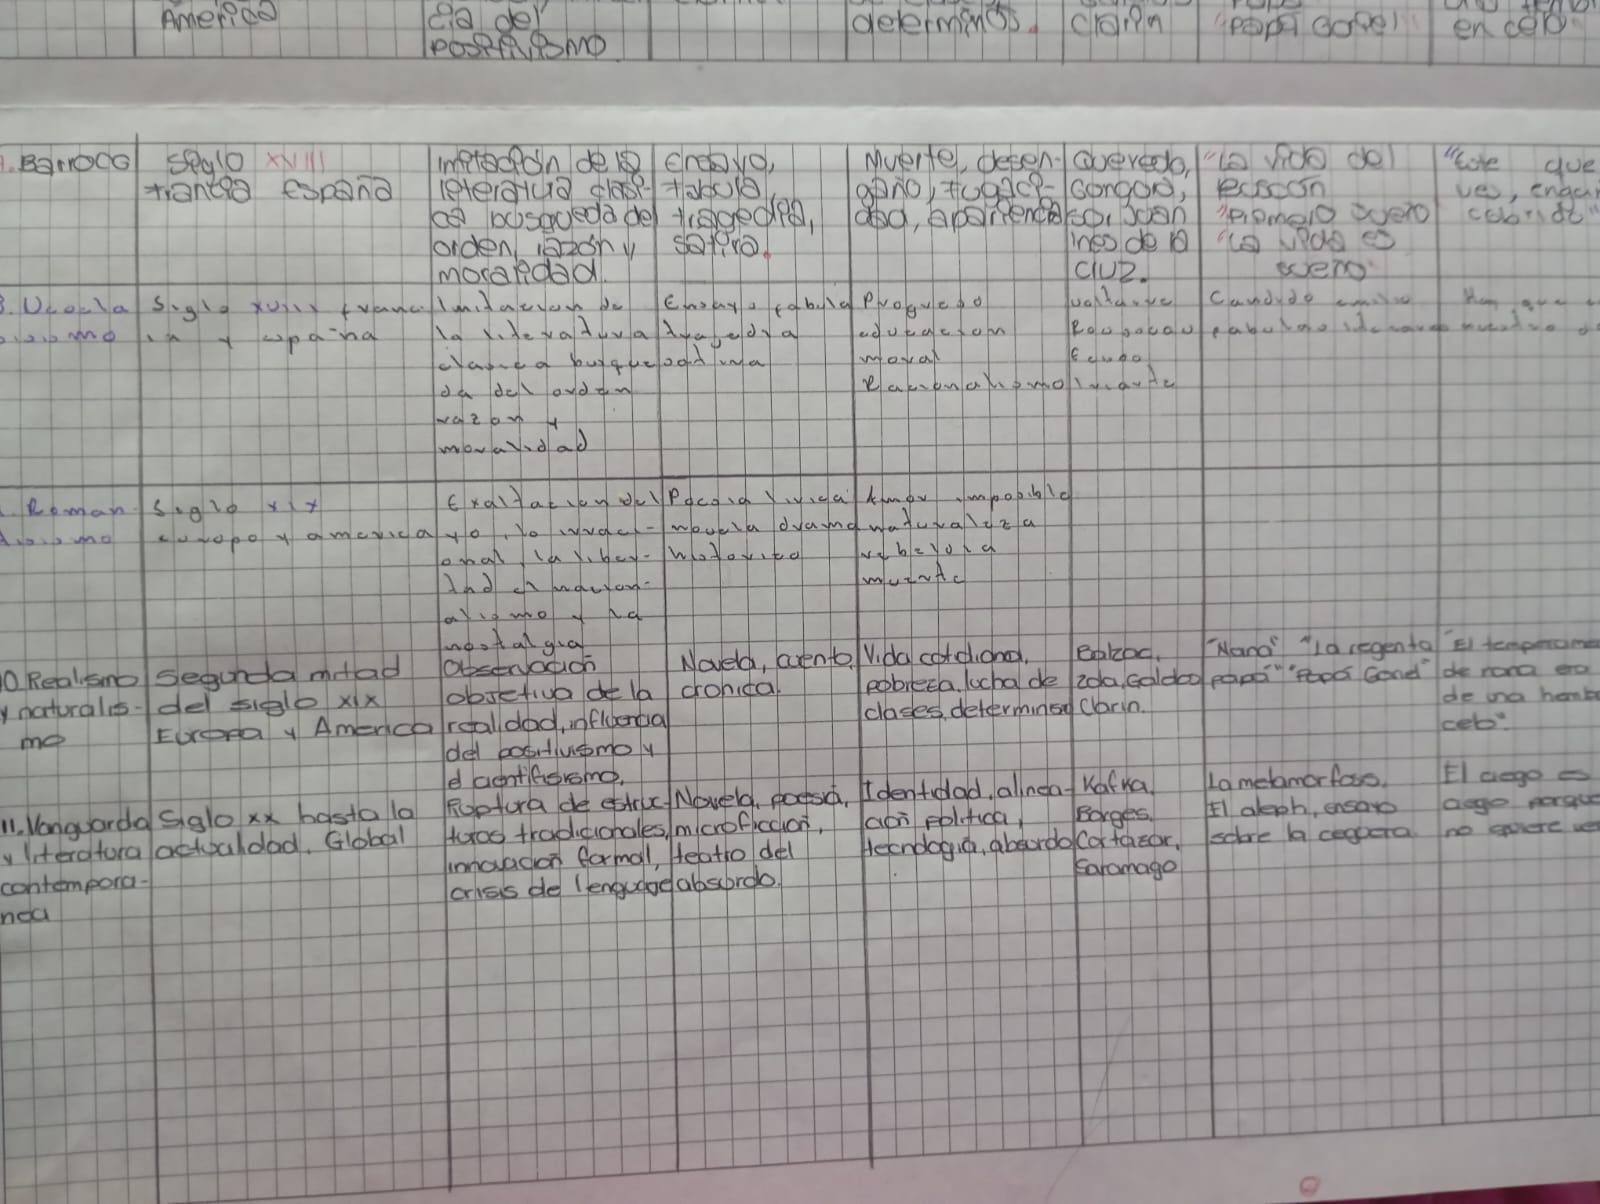 America
cia del
positivismo
determinis.
clarin
"Papá Goriel
en celo
7. Barroco
siglo XVIII
francia España
imitación de la
leteratura clasi-
ca busqueda del
orden, razón y
moralidad.
Ensayo,
fabula,
tragedia,
satira.
Muerte, desen-
gaño, fugaci-
dad, apariencia
Quevedo,
Gongora,
sor Juan
ines de la
cruz.
"La vida del
Buscón
"Primero sueño
"La vida es
sueño
"Este que
ves, engañ
8. Neocla
sisismo
Siglo xviii franc
ia y españa
Imitacion de
la literatura
clasica busque
da del orden
razon y
moralidad
Ensayo fabula
tragedia
satira
Progreso
educacion
moral
Racionalismo
voltaire
Rousseau
Candido emilio
fabulas literarias
Hay que
Roman
tisismo
Siglo xix
europa y america
Exaltacion del
yo, lo irraci-
onal, la liber-
tad el nacion-
alismo y la
nostalgia
Poesia lirica
novela drama
historico
Amor imposible
naturaleza
rebeldia
muerte
10. Realismo
y naturalis-
mo
Segunda mitad
del siglo XIX
Europa y America
Observación
objetiva de la
realidad, influencia
del positivismo y
el cientifisismo.
Novela, cuento,
crónica.
Vida cotidiana,
pobreza, lucha de
clases, determinism
Balzac,
zola, Galdos
Clarin.
"Nana" "La regenta
papá" "Papá Goriel"
El temperame
de nana era
de una hembr
celo".
11. Vanguarda
y literatura
contempora-
nea
Siglo xx hasta la
actualdad. Global
Ruptura de estruc-
turas tradicionales,
innovación formal,
crisis de lenguage
Novela, poesia,
microficcion,
teatro del
absurdo.
Identidad, alinea-
ción politica,
tecnologia, absurdo
Kafka,
Borges,
Cortazar,
Saramago
La metamorfosis,
El aleph, ensayo
sobre la ceguera.
El ciego es
ciego porque
no quiere ver